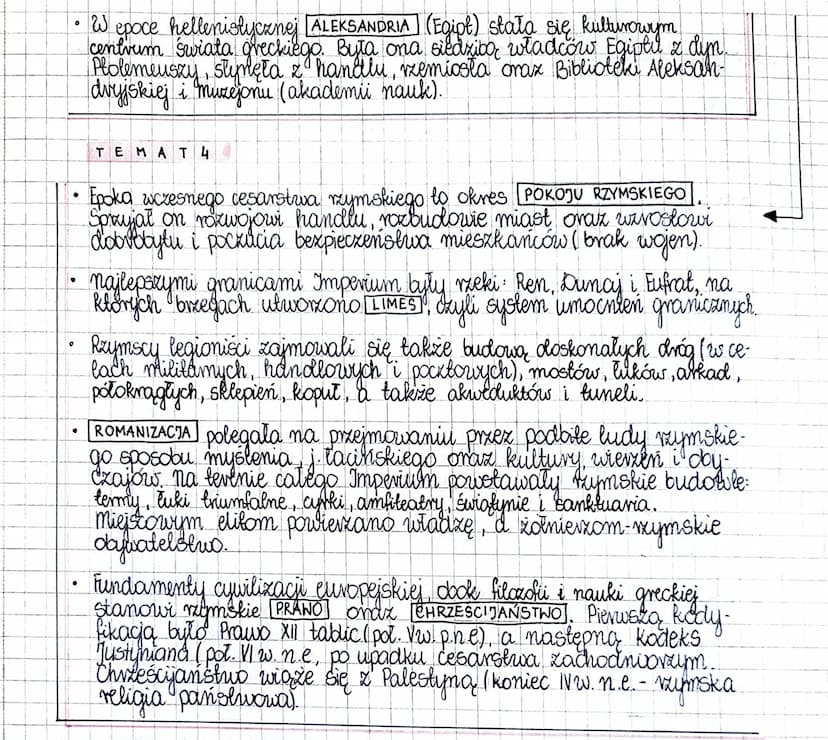 • W epoce hellenistycznej ALEKSANDRIA (Egipt) stała się kulturowym
centrum świata greckiego. Była ona siedzibą władców Egiptu z dyn.
Ptolemeuszy, słynęła z handlu, rzemiosła oraz Biblioteki Aleksan-
dryjskiej i muzejonu (akademii nauk).
TEMAT 4
• Epoka wczesnego cesarstwa rzymskiego to okres POKOJU RZYMSKIEGO.
Sprzyjał on rozwojowi handlu, rozbudowie miast oraz wzrostowi
dobrobytu i poczucia bezpieczeństwa mieszkańców (brak wojen).
• Najlepszymi granicami Imperium były rzeki: Ren, Dunaj i Eufrat, na
których brzegach utworzono LIMES, czyli system umocnień granicznych.
• Rzymscy legioniści zajmowali się także budową doskonałych dróg (w ce-
lach militarnych, handlowych i pocztowych), mostów, łuków, arkad,
półokrągłych, sklepień, kopuł, a także akweduktów i tuneli.
• ROMANIZACJA polegała na przejmowaniu przez podbite ludy rzymskie-
go sposobu myślenia, j. łacińskiego oraz kultury, wierzeń i oby-
czajów. Na terenie całego Imperium powstawały rzymskie budowle:
termy, łuki triumfalne, cyrki, amfiteatry, świątynie i sanktuaria.
Miejscowym elitom powierzano władzę, a żołnierzom - rzymskie
obywatelstwo.
• Fundamenty cywilizacji europejskiej, obok filozofii i nauki greckiej
stanowi rzymskie PRAWO oraz CHRZEŚCIJAŃSTWO. Pierwszą kody-
fikacją było Prawo XII tablic (poł. V w. p.n.e), a następną Kodeks
Justyniana (poł. VI w. n.e, po upadku cesarstwa zachodniorzym.
Chrześcijaństwo wiąże się z Palestyną (koniec IV w. n.e. - rzymska
religia państwowa).